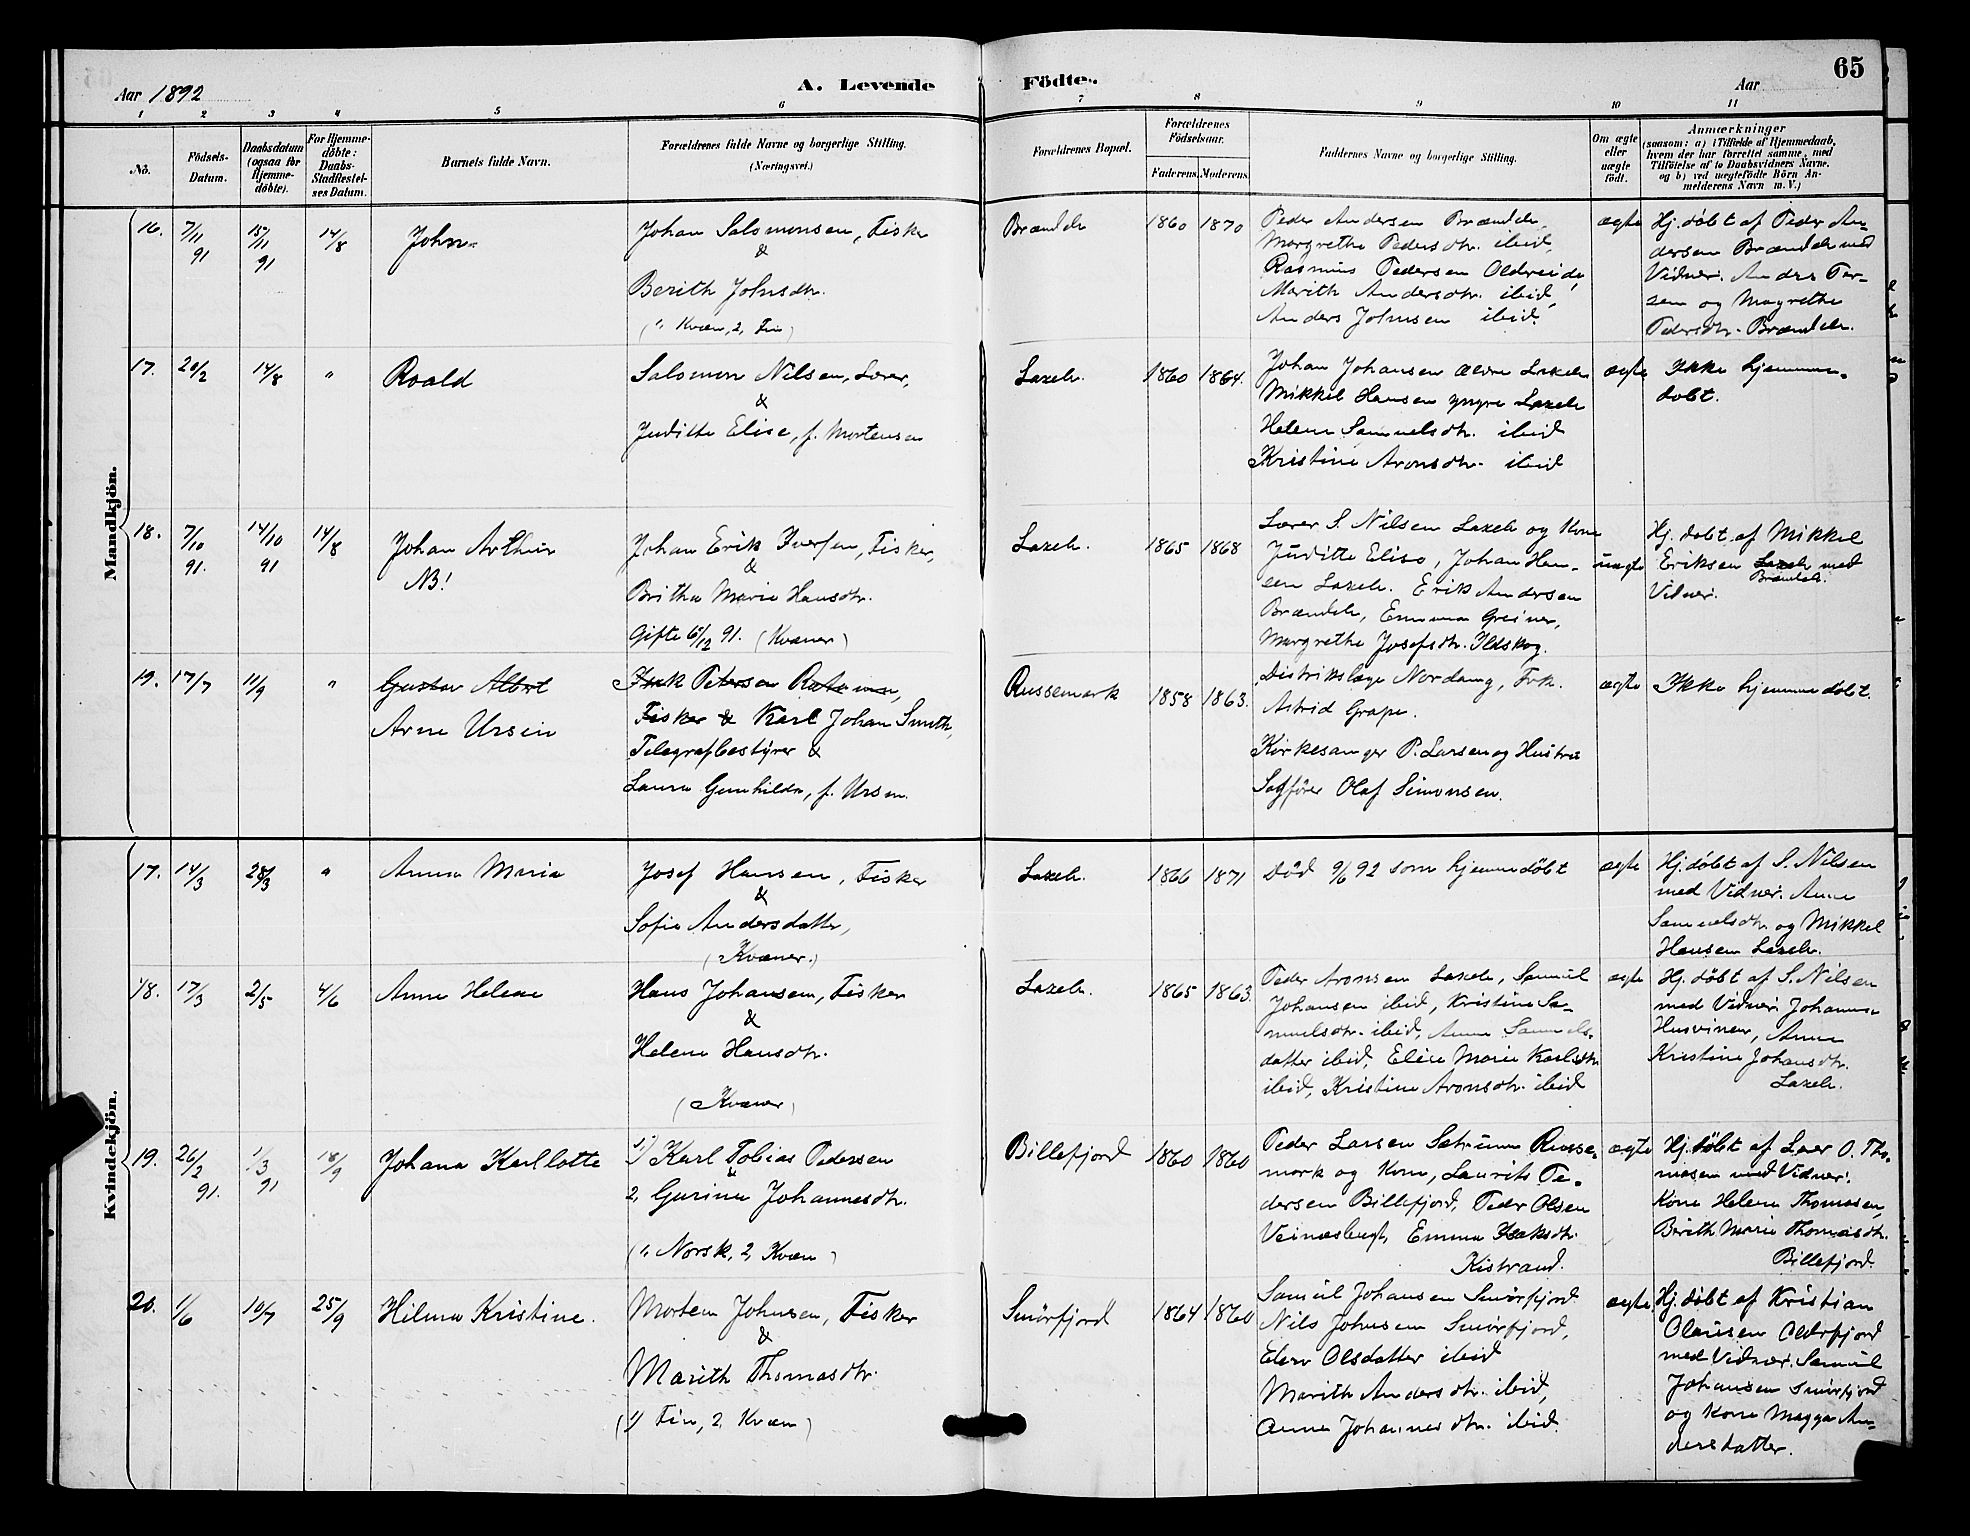 65
Aar 1892
A. Levende Födte.
Aar
1 2 3 4 5 6 7 8 9 10 11
No.
Födsels-Datum.
Daabsdatum (ogsaa for Hjemme-döbte).
For Hjemme-döbte: Daabs-Stadfæstel-ses Datum.
Barnets fulde Navn.
Forældrenes fulde Navne og borgerlige Stilling. (Næringsvei.)
Forældrenes Bopæl.
Forældrenes Födselsaar.
Faderens. Moderens.
Faddernes Navne og borgerlige Stilling.
Om ægte eller uægte födt.
Anmærkninger
(saasom: a) i Tilfælde af Hjemmedaab,
hvem der har forrettet samme, med
Tilföielse af to Daabsvidners Navne,
og b) ved uægtefödte Börn An-
melderens Navn m. V.)
Mandkjön.
16. 7/11 91 15/11 91 14/8 John
Johan Salomonsen, Fisker
&
Berith Johnsdtr.
(1, Kvæn, 2, Fin)
Brændelv 1860 1870
Peder Andersen Brændelv,
Margrethe Pedersdtr. ibid,
Rasmus Pedersen Oldereide,
Marith Andersdtr. ibid,
Anders Johnsen ibid.
ægte
Hj. döbt af Peder An-
dersen Brændelv med
Vidner: Anders Peder-
sen og Magrethe
Pedersdtr. Brændelv.
17. 20/2 14/8 " Roald
Salomon Nilsen, Lærer,
&
Juditte Elise, f. Mortensen
Laxelv. 1860 1864.
Johan Johansen ældre Laxelv
Mikkel Hansen yngre Laxelv
Helene Samuelsdtr. ibid
Kristine Aronsdtr. ibid
ægte
Ikke hjemme-
döbt.
18. 7/10 91. 14/10 91 14/8 Johan Arthur
NB!
Johan Erik Iversen, Fisker,
&
Britha Marie Hansdtr.
Gifte 6/12 91. (Kvæner)
Laxelv. 1865 1868
Lærer S. Nilsen Laxelv og Kone
Juditte Elise, Johan Han-
sen Laxelv. Erik Andersen
Brændelv, Emma Greiner,
Margrethe Josefsdtr. Ildskog.
uægte
Hj. döbt af Mikkel
Eriksen Laxelv med
Brændelv.
Vidner.
19. 17/7 11/9 " Gustav Albert
Arne Ursin
Isak Petersen
Fisker & Karl Johan Smith,
Telegrafbestyrer &
Laura Gunhilda, f. Ursin.
Russemark 1858 1863.
Distriktslæge Nordang, Frk.
Astrid Grape.
Kirkesanger P. Larsen og Hustru
Sagförer Olaf Simonsen.
ægte Ikke hjemmedöbt.
Kvindekjön.
17. 14/3 28/3 " Anna Maria
Josef Hansen, Fisker
&
Sofie Andersdatter,
(Kvæner.)
Laxelv. 1866 1871
Död 9/6 92 som hjemmedöbt
ægte
Hj. döbt af S. Nilsen
med Vidner: Anne
Samuelsdtr. og Mikkel
Hansen Laxelv.
18. 17/3 2/5 4/6 Anne Helene
Hans Johansen, Fisker
&
Helene Hansdtr.
(Kvæner)
Laxelv. 1865 1863.
Peder Aronsen Laxelv, Samuel
Johansen ibid, Kristine Sa-
muelsdtr. ibid, Anne Samuels-
datter ibid, Elise Marie Karlsdtr.
ibid, Kristine Aronsdtr. ibid
ægte
Hj. döbt af S. Nilsen
med Vidner: Johannes
Husvinen, Anne
Kristine Johansdtr.
Laxelv.
19. 26/2 91. 1/3 91 18/9 Johana Karllotte
1) Karl Tobias Pedersen
&
2, Gurina Johannesdtr.
(1, Norsk, 2, Kvæn)
Billefjord 1860 1860
Peder Larsen Sætrum Russe-
mark og Kone, Laurits Pe-
dersen Billefjord, Peder Olsen
Veinæsbugt, Emma Isaksdtr.
Kistrand.
ægte
Hj. döbt af Lærer O. Tho-
masen med Vidner:
Kone Helene Thomasen,
Berith Marie Thomasdtr.
Billefjord.
20. 1/6 10/7 25/9 Hilma Kristine.
Morten Johnsen, Fisker
&
Marith Thomasdtr.
(1) Fin, 2, Kvæn)
Smörfjord 1864 1860
Samuel Johansen Smörfjord
Nils Johnsen Smörfjord,
Elen Olsdatter ibid
Marith Andersdtr. ibid,
Anne Johannesdtr. ibid.
ægte.
Hj. döbt af Kristian
Olausen Olderfjord
med Vidner: Samuel
Johansen Smörfjord
og Kone Magga An-
dersdatter.